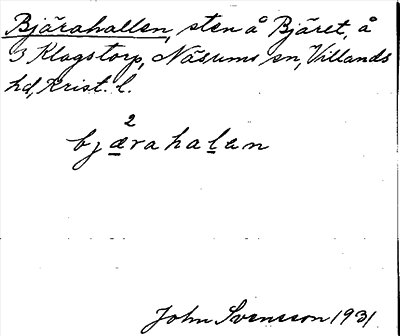 Bjärahallen, sten å Bjäret, å
3 Klagstorp, Näsums sn, Villands
hd, Krist. l.
2
bjærahalen
John Svensson 1931